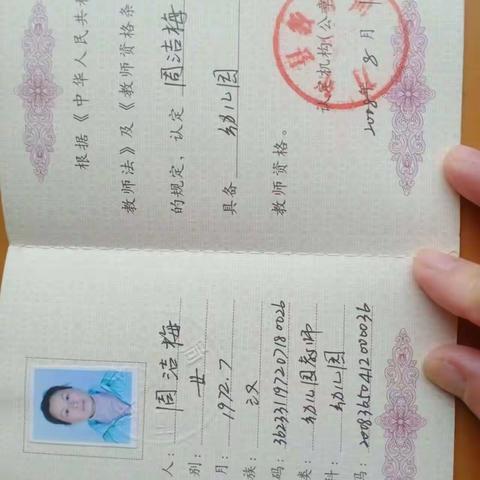 人：周洁梅
别：女
月：1972.7
族：汉
码：362331197207180026
类：幼儿园教师
科：幼儿园
码：20083650412000036
根据《中华人民共和
教师法》及《教师资格条
的规定，认定 周洁梅
具备 幼儿园
教师资格。
认定机构(公章
2008年 8 月